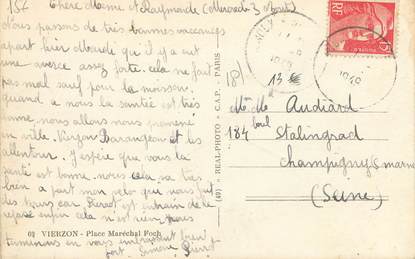 15f Chère Mémé et Raymonde (Mercredi 3 Août)
Nous passons de très bonnes vacances
apart hier Mardi qu'il y a eut
une averse assez forte. cela ne fait
pas mal surtout pour la moisson.
quand a nous la santé est très
bonne, nous allons nous promener
en ville. Vierzon Barangeon et les
allentour. J'espère que vous la
santé est bonne, nous cela va très
bien a part mon velo que nous
des tours car Pierrot est entrain de le
enfin cela n'est rien, nous
terminons en vous embrassant bien
fort. Simone Pierrot
61 VIERZON - Place Maréchal Foch
(49) « REAL-PHOTO » C.A.P. - PARIS
RF
15F
1949
181
13
Mr Me Audiard
184 boul Stalingrad
Champigny s marne
(Seine)